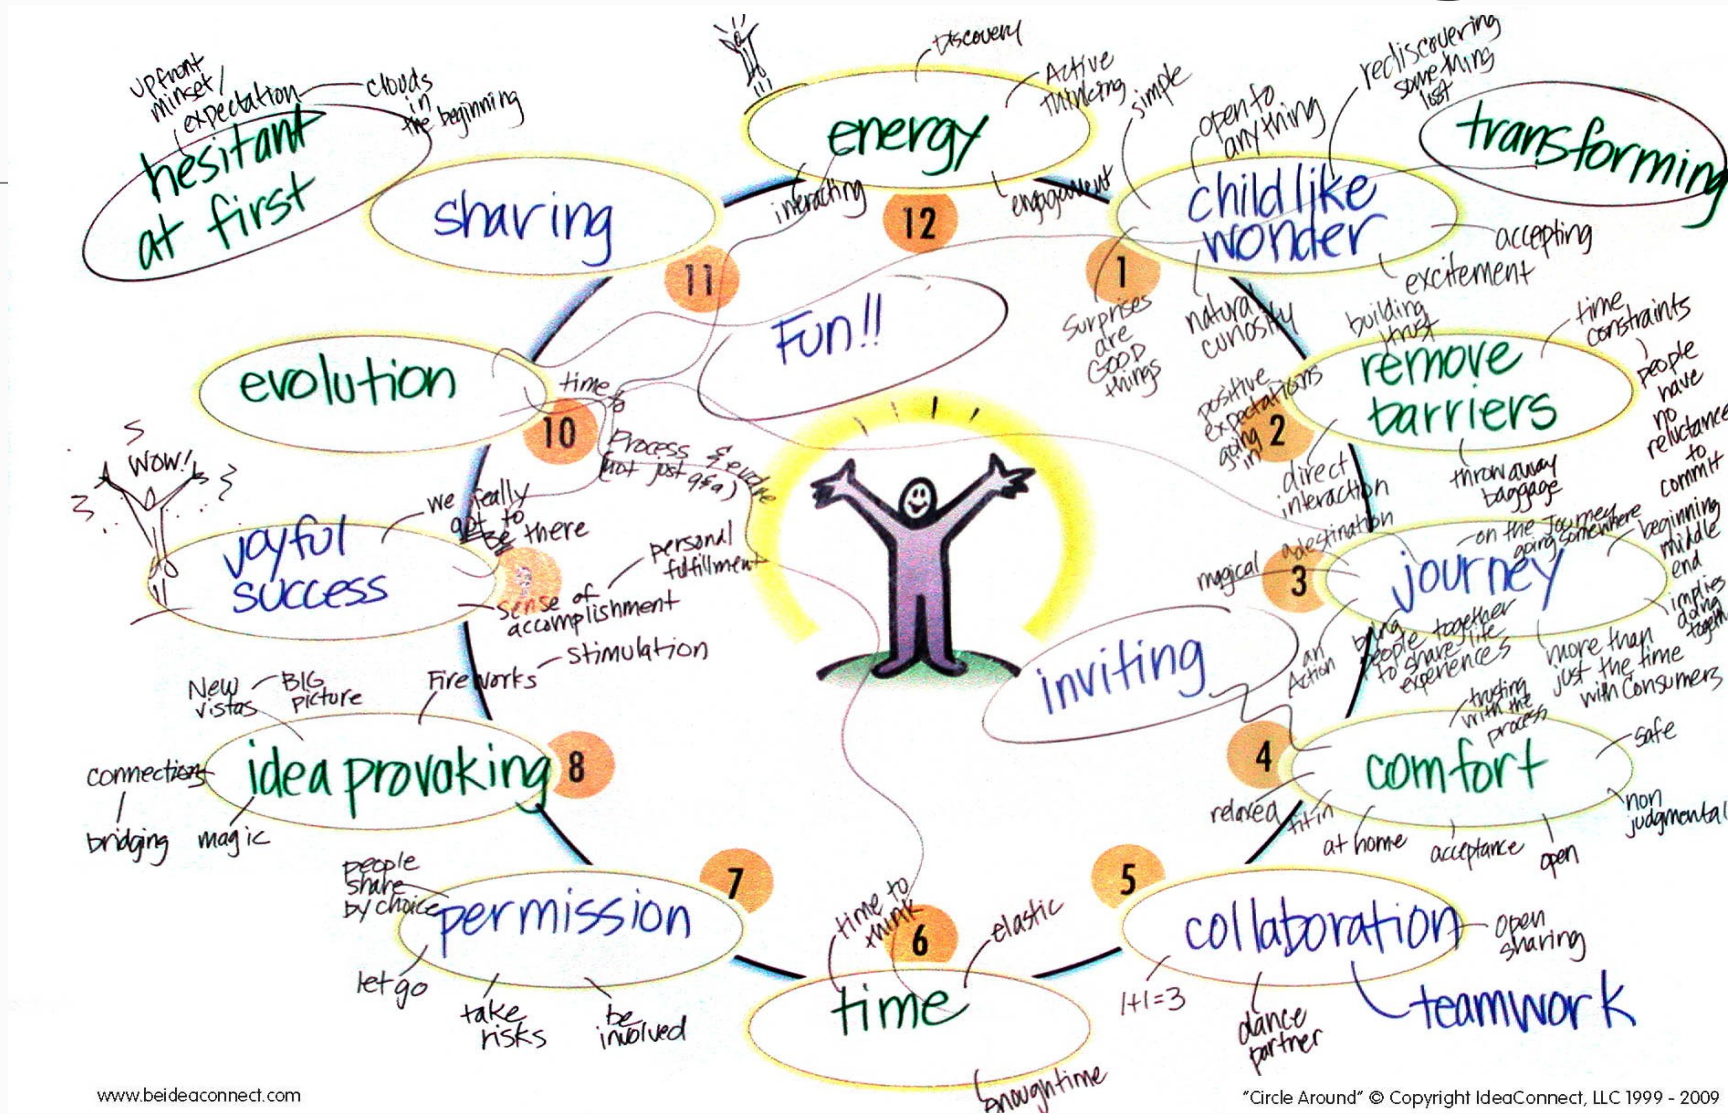 upfront
minset/
expectation
clouds
in
the beginning
hesitant
at first
sharing
11
Discovery
Active
thinking
energy
interacting
engagement
12
simple
open to
anything
rediscovering
something
lost
transforming
child like
wonder
accepting
excitement
1
Surprises
are
GOOD
things
natural
curiosity
Fun!!
evolution
10
time to
process & evolve
(not just q&a)
building
trust
time
constraints
people
have
no
reluctance
to
commit
remove
barriers
positive
expectations
going
in
2
direct
interaction
throw away
baggage
WOW!
joyful
success
we really
got to
be there
sense of
accomplishment
personal
fulfillment
on the Journey
going somewhere
beginning
middle
end
implies
doing
journey
a destination
magical
3
an
Action
bring
people together
to share life
experiences
more than
just the time
with Consumers
inviting
New
vistas
BIG
picture
Fireworks
stimulation
idea provoking
8
connections
bridging
magic
trusting
with the
process
safe
comfort
4
relaxed
fit in
at home
acceptance
open
non
judgmental
people
share
by choice
permission
7
let go
take
risks
be
involved
time to
think
6
elastic
time
enough time
5
collaboration
open
sharing
1+1=3
dance
partner
teamwork
www.beideaconnect.com
"Circle Around" © Copyright IdeaConnect, LLC 1999 - 2009